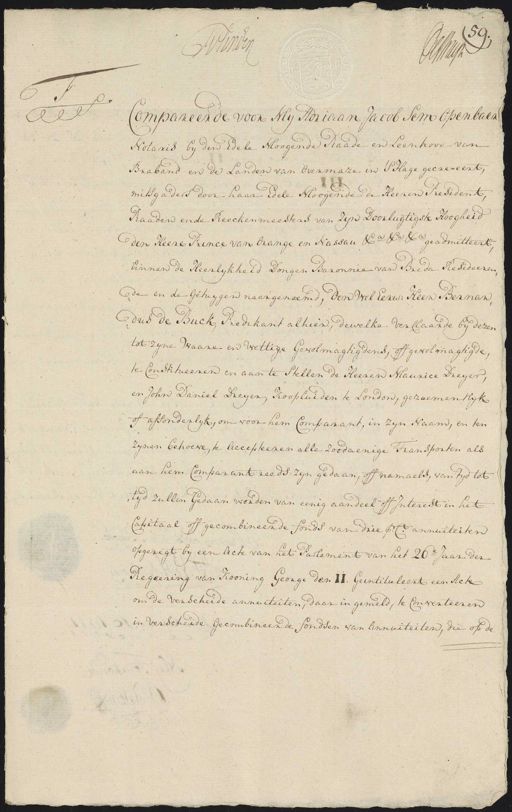 59.
Compareerde voor My Adriaan Jacob Sem openbaer
Notaris by den Edele Hoogende Raade en Leenhove van
Braband en de Landen van Overmaze in S'Hage gecreeert,
mitsgaders door haar Edele Hoogende de Heeren President,
Raaden en de Reeckenmeesters van Zyn Doorlugtigste Hoogheid
den Heere Prince van Orange en Nassau &ca &ca &ca geadmitteert,
binnen de Heerlykheid Dongen Baronnie van Breda Resideeren,
de en de Getuygen naergenoemd, Den Wel Eerw: Heer Berman,
dus de Buck, Predikant alhier, dewelke verklaarde by dezen
tot zyne Waare en Wettige Gevolmagtigdens, off gevolmagtigde,
te Constitueeren en aan te Stellen de Heeren Maurice Dreyer,
en John Daniel Dreyer, Kooplui den te London, gezaementlyk
of afsonderlyk, om voor hem Comparant, in zyn Naam, en ten
zynen behoeve, te Accepteeren alle zoodaenige Transporten als
aan hem Comparant reeds zyn gedaan, off namaels, van tyd tot
tyd zullen Gedaan worden van eenig aandeel off Interest in het
Capitaal off gecombineerde fonds van drie p Ct annuiteiten
opgeregt by een Ack van het Parlement van het 26e Jaar der
Regeering van Kooning George den II Geintituleert een Ack
om de verscheide annuiteiten, daar in gemeld, te Converteeren
in verscheide Gecombineerde fondsen van Annuiteiten, die op de